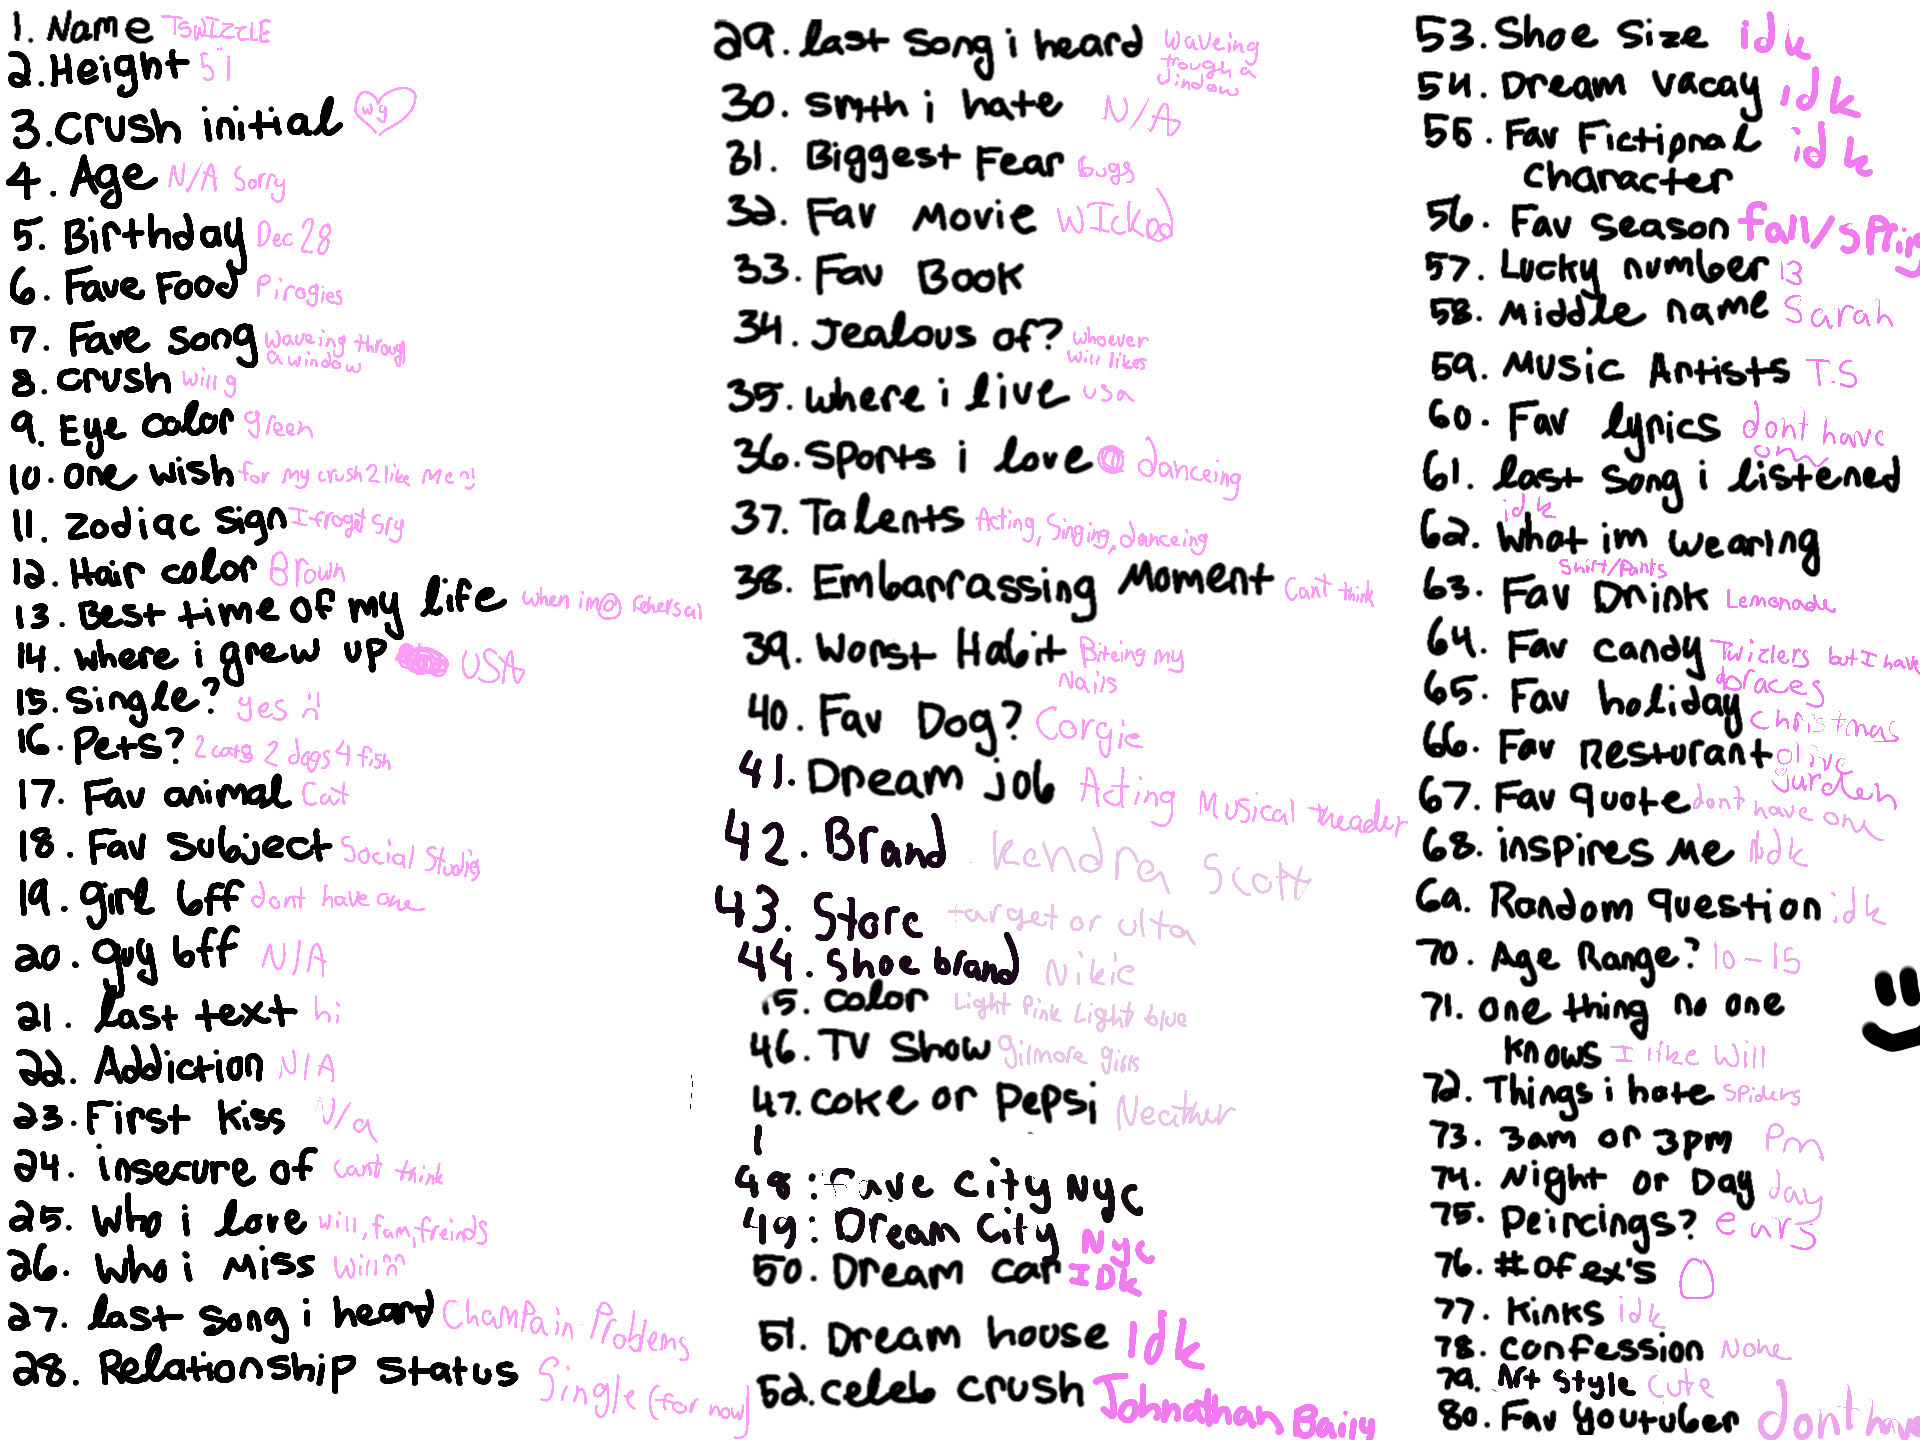 1. Name TSWIZZLE
2. Height 5 1
3. Crush initial wg
4. Age N/A Sorry
5. Birthday Dec 28
6. Fave Food Pirogies
7. Fave song waveing through
a window
8. Crush will g
9. Eye color green
10. one wish for my crush 2 like me
11. Zodiac Sign I froget sry
12. Hair color Brown
13. Best time of my life when im@ rehersal
14. where i grew up USA
15. Single? yes
16. Pets? 2 cats 2 dogs 4 fish
17. Fav animal Cat
18. Fav subject Social Studies
19. girl bff dont have one
20. guy bff N/A
21. last text hi
22. Addiction N/A
23. First kiss N/a
24. insecure of cant think
25. Who i love will, fam, freinds
26. Who i Miss Will
27. last song i heard Champain Problems
28. Relationship Status Single (for now)
29. last song i heard waveing
trough a
window
30. smth i hate N/A
31. Biggest Fear bugs
32. Fav Movie WIcked
33. Fav Book
34. Jealous of? whoever
will likes
35. where i live usa
36. Sports i love danceing
37. Talents Acting, Singing, danceing
38. Embarrassing Moment Cant think
39. Worst Habit Biteing my
Nails
40. Fav Dog? Corgie
41. Dream job Acting Musical theader
42. Brand Kendra Scott
43. Store target or ulta
44. Shoe brand Nikie
15. color Light Pink Light blue
46. TV Show gilmore girls
47. COKE or Pepsi Neather
48: Fave City NYC
49: Dream City NYC
50. Dream car IDK
51. Dream house Idk
52. celeb crush Johnathan Baily
53. Shoe Size idk
54. Dream vacay idk
55. Fav Fictipnal idk
Character
56. Fav season fall/spring
57. Lucky number 13
58. Middle name Sarah
59. Music Artists T.S
60. Fav lyrics dont have
one
61. last song i listened
idk
62. What im wearing
Shirt/Pants
63. Fav Drink Lemonade
64. Fav candy Twizlers but I have
braces
65. Fav holiday Christmas
66. Fav Resturant olive
gurden
67. Fav quote dont have one
68. inspires me idk
69. Random question idk
70. Age Range? 10-15
71. one thing no one
knows I like Will
72. Things i hate spiders
73. 3am or 3pm Pm
74. Night or Day day
75. Peircings? ears
76. # of ex's 0
77. Kinks idk
78. confession None
79. Art style cute
80. Fav youtuber dont have